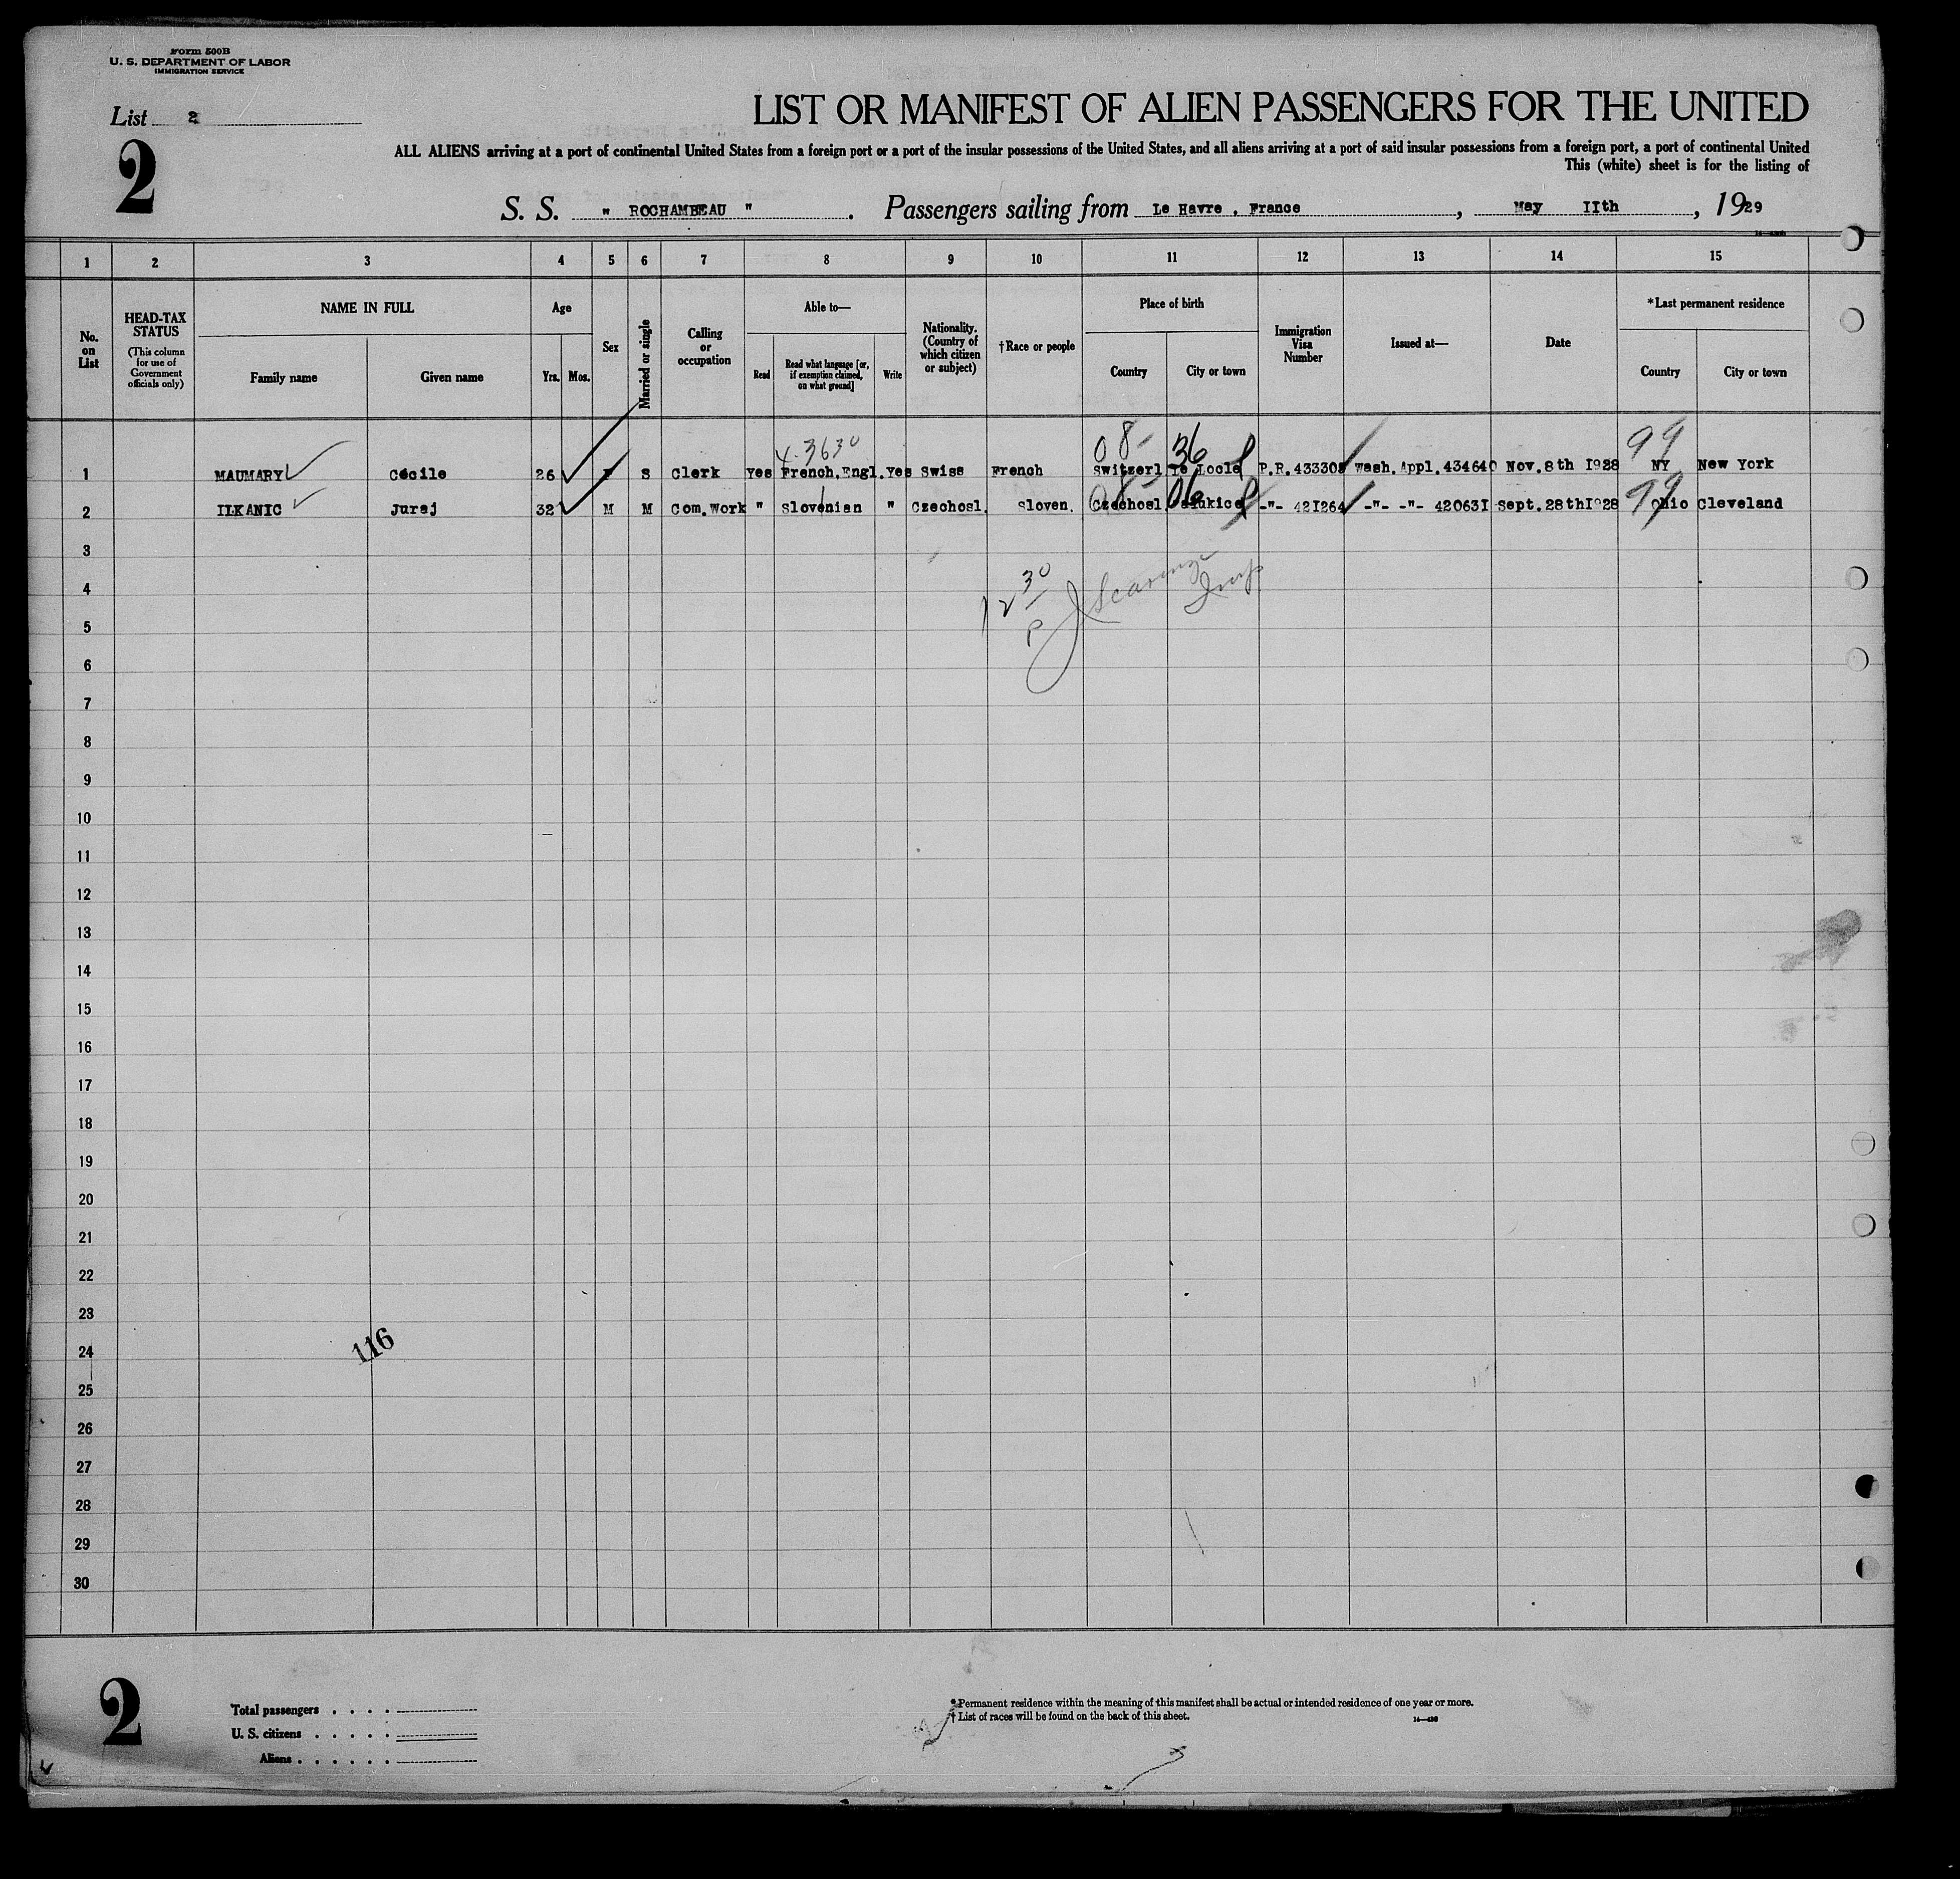 Form 500B
U. S. DEPARTMENT OF LABOR
IMMIGRATION SERVICE
List 2
2
LIST OR MANIFEST OF ALIEN PASSENGERS FOR THE UNITED
ALL ALIENS arriving at a port of continental United States from a foreign port or a port of the insular possessions of the United States, and all aliens arriving at a port of said insular possessions from a foreign port, a port of continental United
This (white) sheet is for the listing of
S. S. " ROCHAMBEAU " . Passengers sailing from Le Havre , France , May IIth , 1929
1 2 3 4 5 6 7 8 9 10 11 12 13 14 15
No. on List
HEAD-TAX STATUS (This column for use of Government officials only)
NAME IN FULL
Family name Given name
Age
Yrs. Mos.
Sex
Married or single
Calling or occupation
Able to—
Read Read what language [or, if exemption claimed, on what ground] Write
Nationality. (Country of which citizen or subject)
†Race or people
Place of birth
Country City or town
Immigration Visa Number
Issued at—
Date
*Last permanent residence
Country City or town
4-3630 08- 36 99
1 MAUMARY Cécile 26 F S Clerk Yes French,Engl. Yes Swiss French Switzerl Le Locle P.R.433308 Wash. Appl. 434640 Nov. 8th I928 NY New York
06 99
2 ILKANIC Juraj 32 M M Com.Work " Slovenian " Czechosl. Sloven. Czechosl. -"- 42I264 -"- -"- 42063I Sept. 28th I928 Ohio Cleveland
3
12 30 P
4
5
6
7
8
9
10
11
12
13
14
15
16
17
18
19
20
21
22
23
24
116
25
26
27
28
29
30
2
Total passengers . . . .
U. S. citizens . . . . .
Aliens . . . . . .
*Permanent residence within the meaning of this manifest shall be actual or intended residence of one year or more.
†List of races will be found on the back of this sheet.